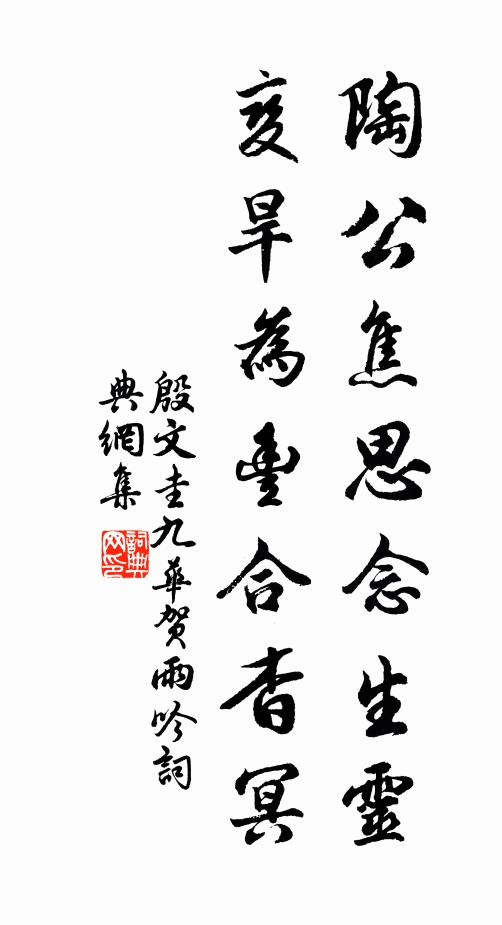 陶公焦思念生靈
變旱為豐合杳冥
殷文圭九華賀雨吟詞
典網集
詞典
网印